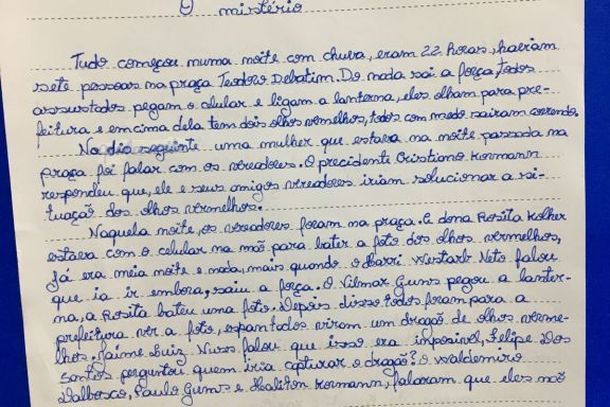 O mistério
Tudo começou numa noite com chuva, eram 22 horas, haviam
sete pessoas na praça Teodoro Debatim. Do nada sai a força, todos
assustados pegam o celular e ligam a lanterna, eles olham para pre-
feitura e em cima dela tem dois olhos vermelhos, todos com medo sairam correndo.
No dia seguinte uma mulher que estava na noite passada na
praça foi falar com os vereadores. O precidente Cristiano Kormann
respondeu que, ele e seus amigos vereadores iriam solucionar a si-
tuação dos olhos vermelhos.
Naquela noite, os vereadores foram na praça. E dona Rosita Kolher
estava com o celular na mão para bater a foto dos olhos vermelhos,
Já era meia noite e nada, mais quando o Harri Westarb Neto falou
que ia ir embora, saiu a força. O Vilmar Gums pegou a lanter-
na, a Rosita bateu uma foto. Depois disso todos foram para a
prefeitura ver a foto, espantados viram um dragão de olhos verme-
lhos. Jaime Luiz Nuss falou que isso era imposivel, Felipe Dos
santos perguntou quem iria capturar o dragão? O Waldemiro
Dalbosco, Paulo Gums e Haliton Kormann, falaram que eles não